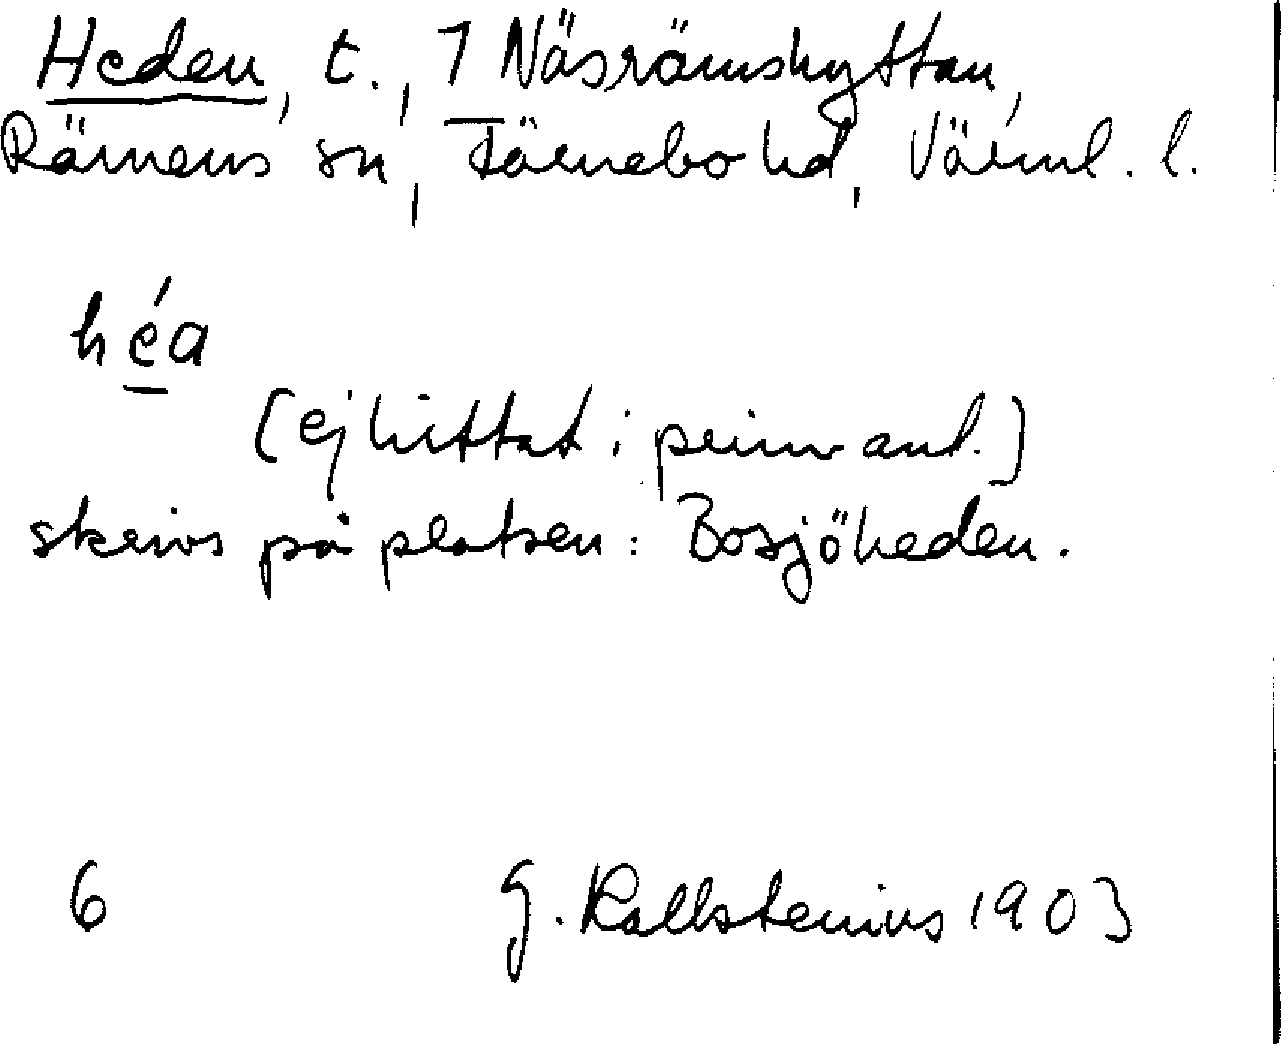 Heden, t., 1 Näsrämshyttan,
Rämens sn, Färnebo hd, Värml. l.
héa
(ej hittat i prim anl.)
skrivs på platsen: Bosjöheden.
6 G. Kallstenius 1903